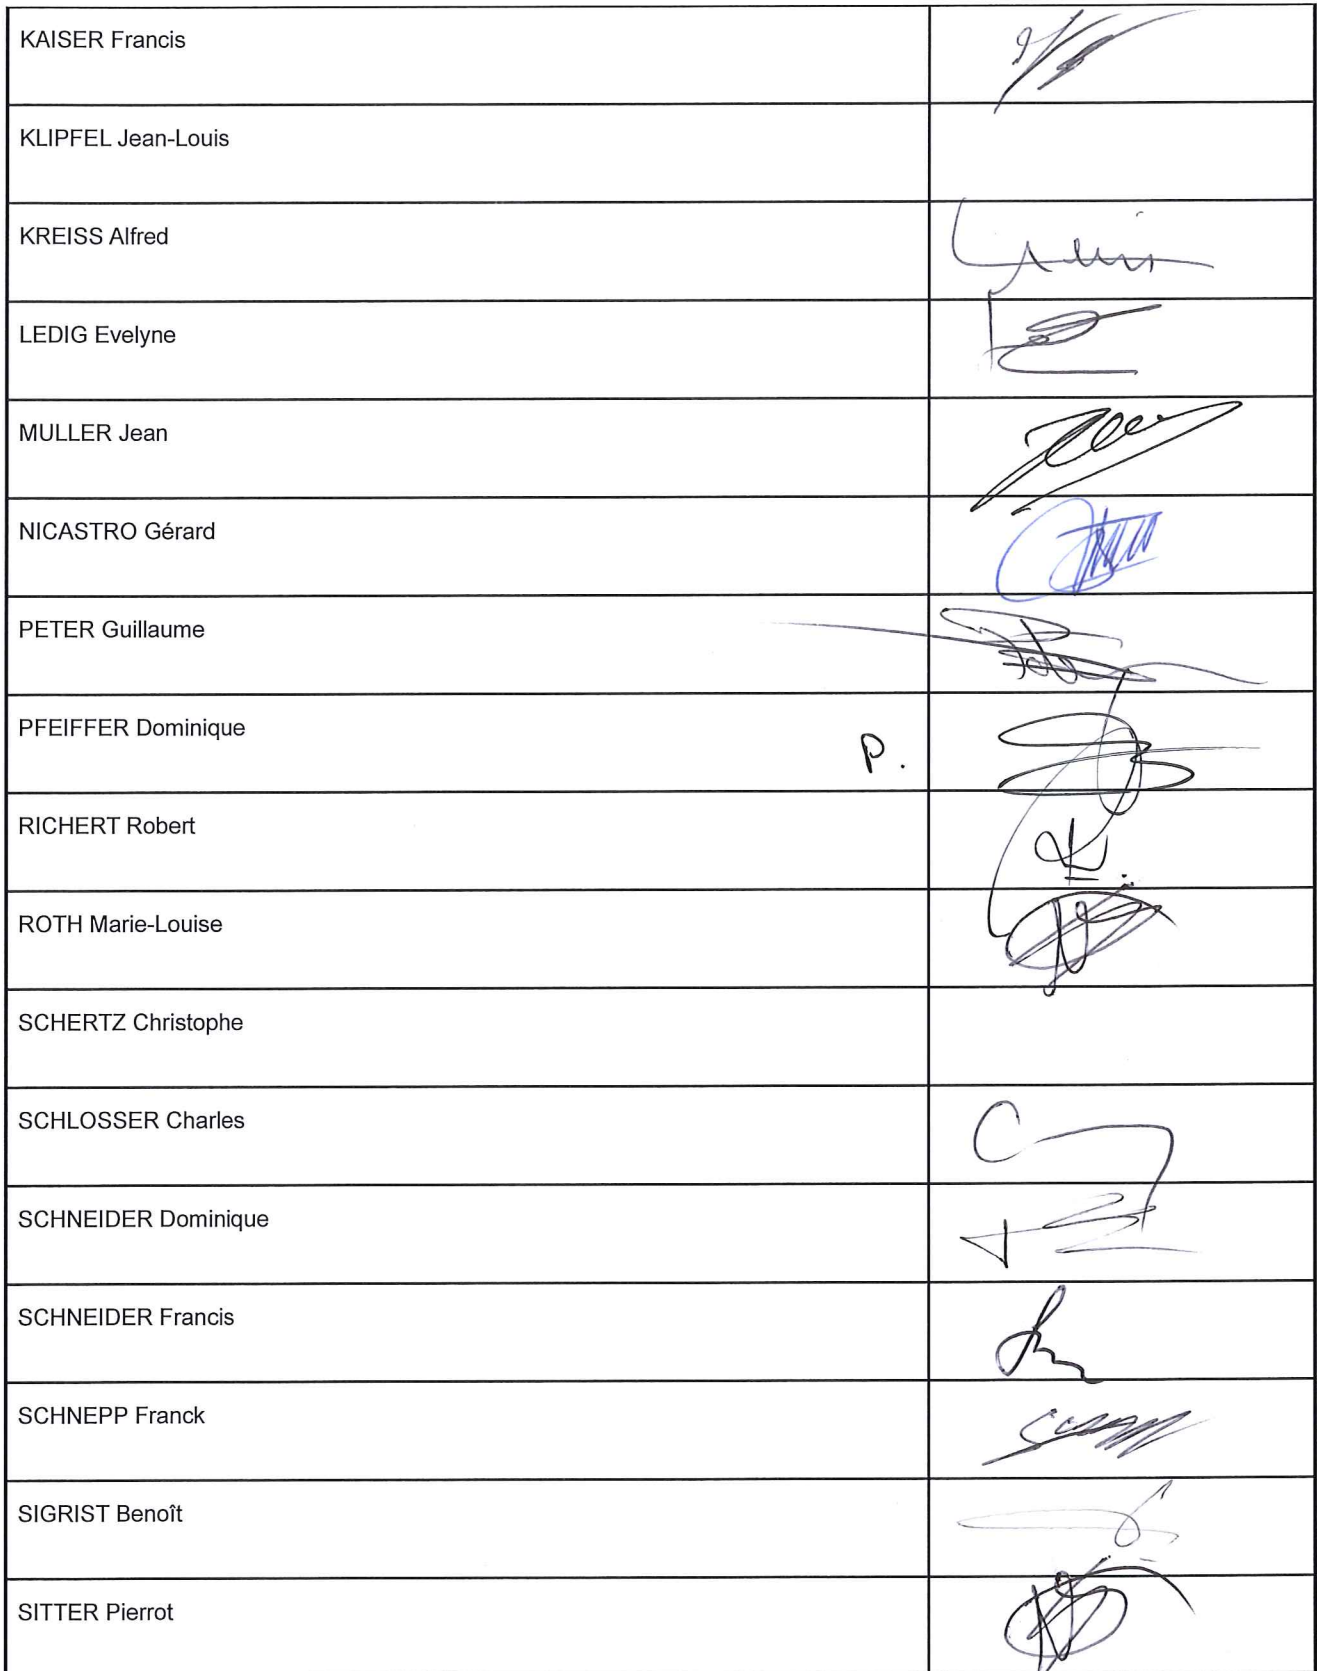 KAISER Francis
KLIPFEL Jean-Louis
KREISS Alfred
LEDIG Evelyne
MULLER Jean
NICASTRO Gérard
PETER Guillaume
PFEIFFER Dominique
P.
RICHERT Robert
ROTH Marie-Louise
SCHERTZ Christophe
SCHLOSSER Charles
SCHNEIDER Dominique
SCHNEIDER Francis
SCHNEPP Franck
SIGRIST Benoît
SITTER Pierrot